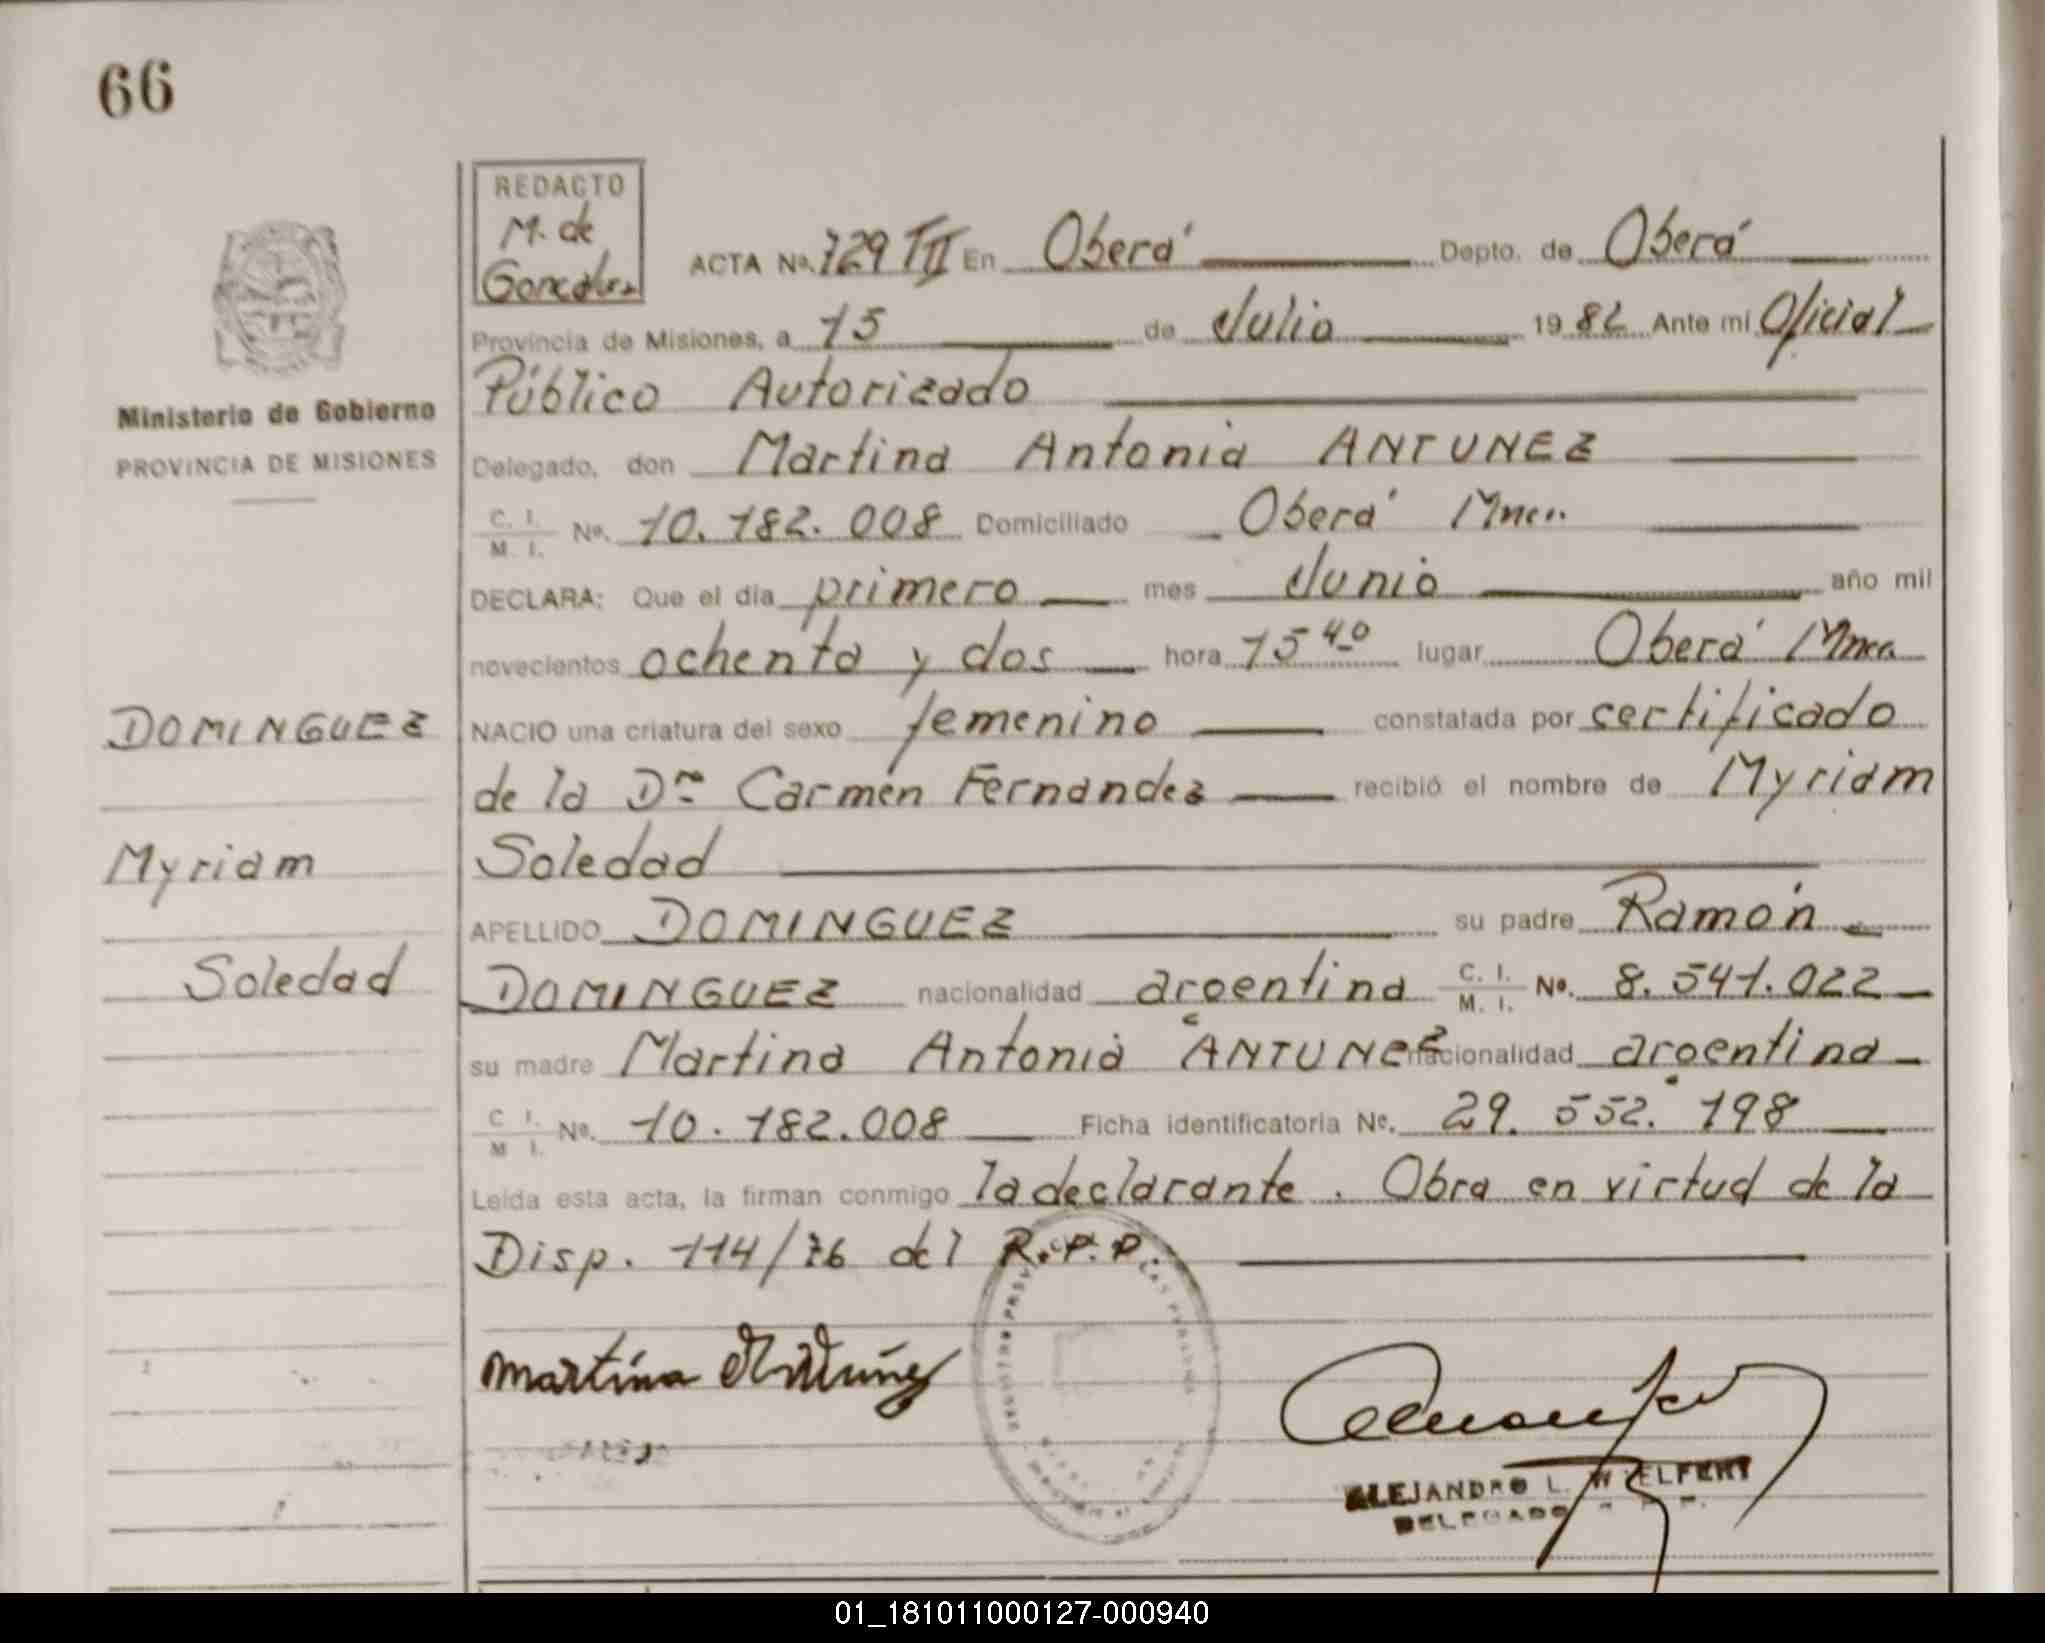 66
REDACTO
M. de
ACTA No. 729 TII En Oberá Depto. de Oberá
Provincia de Misiones, a 15 de Julio 1982 Ante mi Oficial
Ministerio de Gobierno
PROVINCIA DE MISIONES
Público Autorizado
Delegado, don Martina Antonia ANTUNEZ
C. I. M. I. No. 10.182.008 Domiciliado Oberá Mnes.
DECLARA: Que el día primero mes Junio año mil
novecientos ochenta y dos hora 15 40 lugar Oberá Mnes.
DOMINGUEZ
NACIO una criatura del sexo femenino constatada por certificado
de la Dra Carmen Fernandez recibió el nombre de Myriam
Myriam
Soledad
APELLIDO DOMINGUEZ su padre Ramón
Soledad
DOMINGUEZ nacionalidad argentina C. I. M. I. No. 8.541.022
su madre Martina Antonia ANTUNEZ nacionalidad argentina
C. I. M. I. No. 10.182.008 Ficha identificatoria No. 29.552.198
Leída esta acta, la firman conmigo la declarante. Obra en virtud de la
Disp. 114/76 del R.P.P.
Martina Antuñez
ALEJANDRO L. WELFERT
DELEGADO
01_181011000127-000940